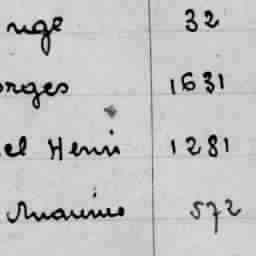 nge 32
orges 1631
el Henri 1281
Maurice 572